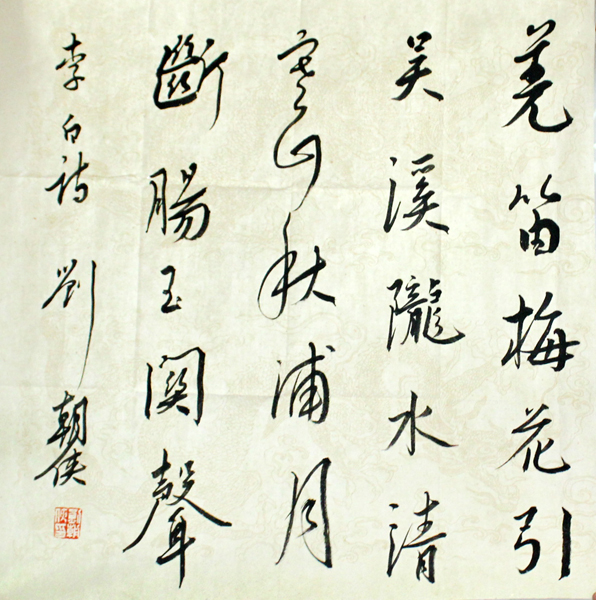 羌笛梅花引
吴溪隴水清
寒山秋浦月
斷腸玉関聲
李白詩 劉朝侠